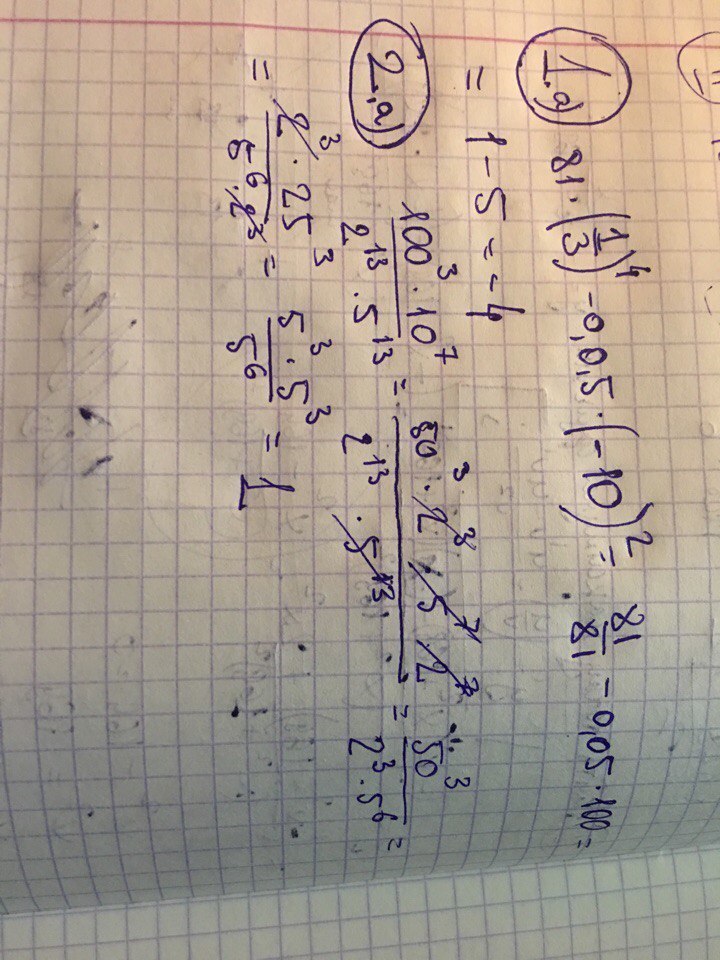 1.a) 81·(1/3)^4 - 0,0,5·(-10)^2 = 81/81 - 0,05·100 =
= 1 - 5 = -4
2.a) (100^3·10^7)/(2^13·5^13) = (50^3·2^3·5^7·2^7)/(2^13·5^13) = 50^3/(2^3·5^6) =
= (2^3·25^3)/(5^6·2^3) = (5^3·5^3)/5^6 = 1